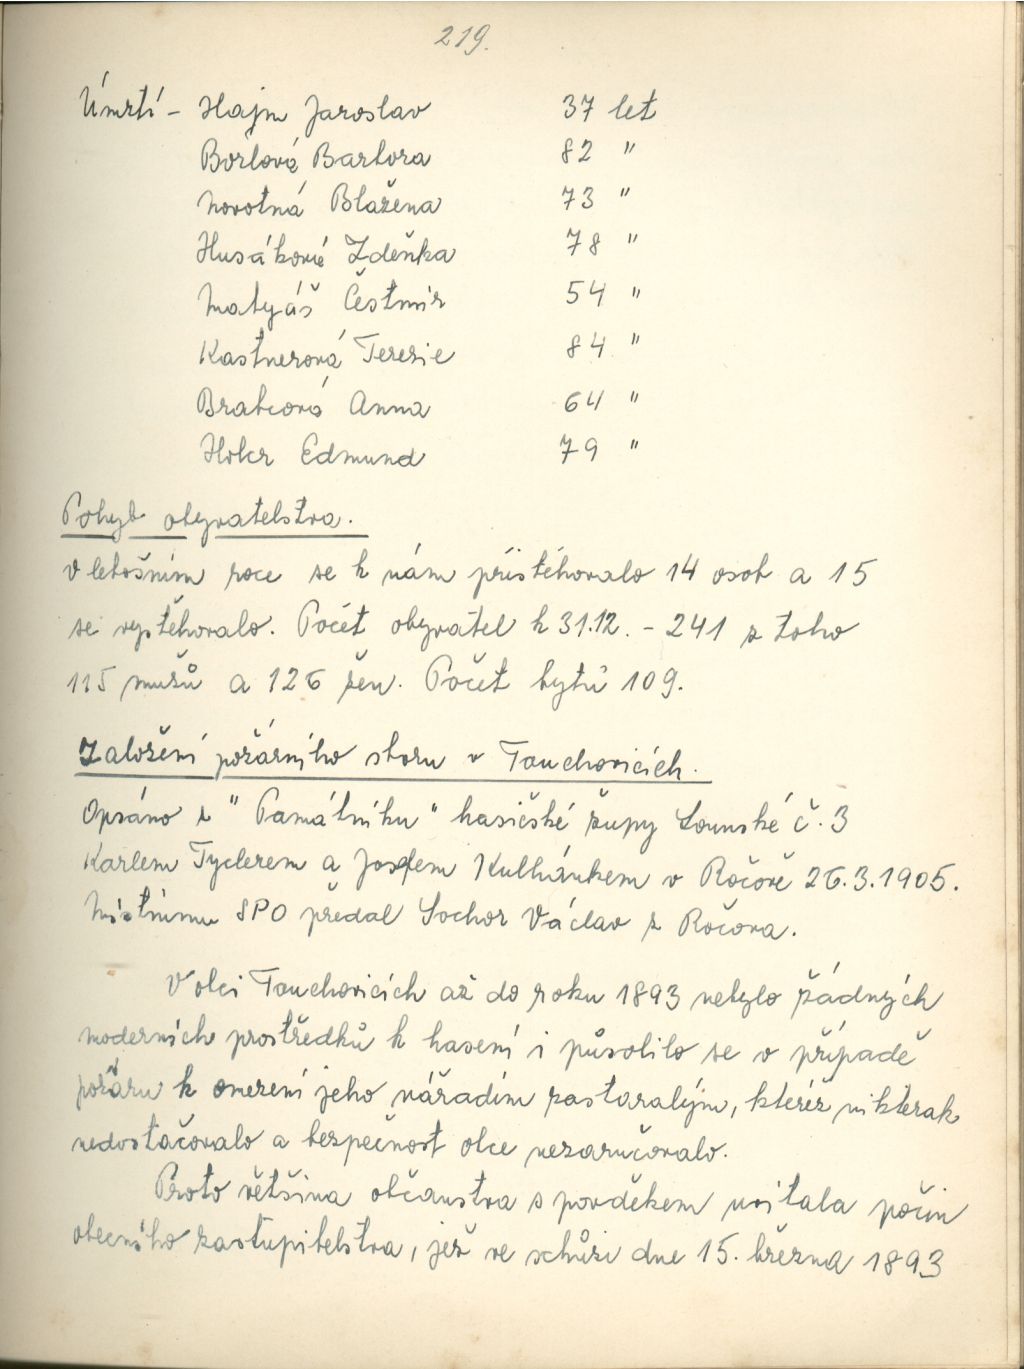 219.
Úmrtí - Hajm Jaroslav 37 let
Borlová Barbora 82 "
Novotná Blažena 73 "
Husákové Zdeňka 78 "
Matyáš Čestmír 54 "
Kastnerová Terezie 84 "
Brabcová Anna 64 "
Holer Edmund 79 "
Pohyb obyvatelstva.
V letošním roce se k nám přistěhovalo 14 osob a 15
se vystěhovalo. Počet obyvatel k 31.12. - 241 z toho
115 mužů a 126 žen. Počet bytů 109.
Založení požárního sboru v Touchovicích.
Opsáno z "Památníku" hasičské župy Lounské č. 3
Karlem Tyclerem a Josefem Kulhánkem v Ročově 26.3.1905.
Místnímu SPO předal Sochor Václav z Ročova.
V obci Touchovicích až do roku 1893 nebylo žádných
moderních prostředků k hasení i působilo se v případě
požáru k omezení jeho nářadím zastaralým, kteréž nikterak
nedostačovalo a bezpečnost obce nezaručovalo.
Proto většina občanstva s povděkem uvítala počin
obecního zastupitelstva, jež ve schůzi dne 15. března 1893